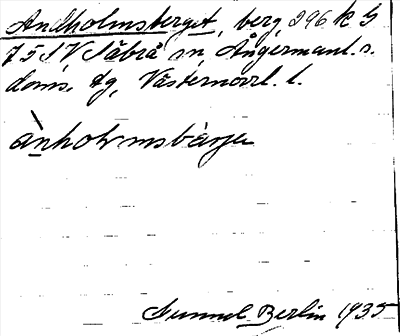 Andholmsberget, berg, 296 k G
7 5 SV Säbrå sn, Ångermanl. s.
doms. tg, Västernorrl. l.
ànholmsbärje
Gunnel Berlin 1935